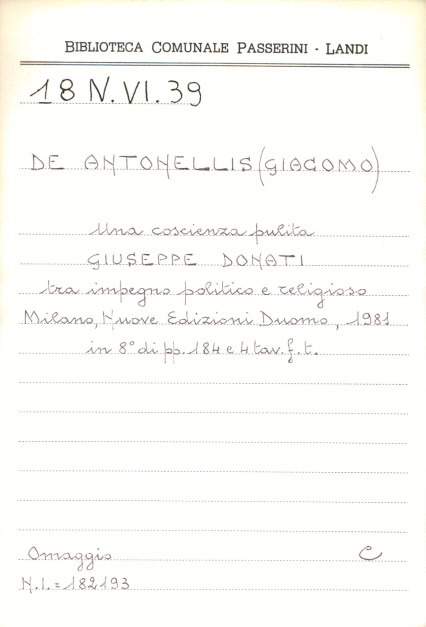 BIBLIOTECA COMUNALE PASSERINI - LANDI
18 N.VI.39
DE ANTONELLIS (GIACOMO)
Una coscienza pulita
GIUSEPPE DONATI
tra impegno politico e religioso
Milano, Nuove Edizioni Duomo, 1981
in 8° di pp. 184 e 4 tav. f. t.
Omaggio C
N.I. = 182193